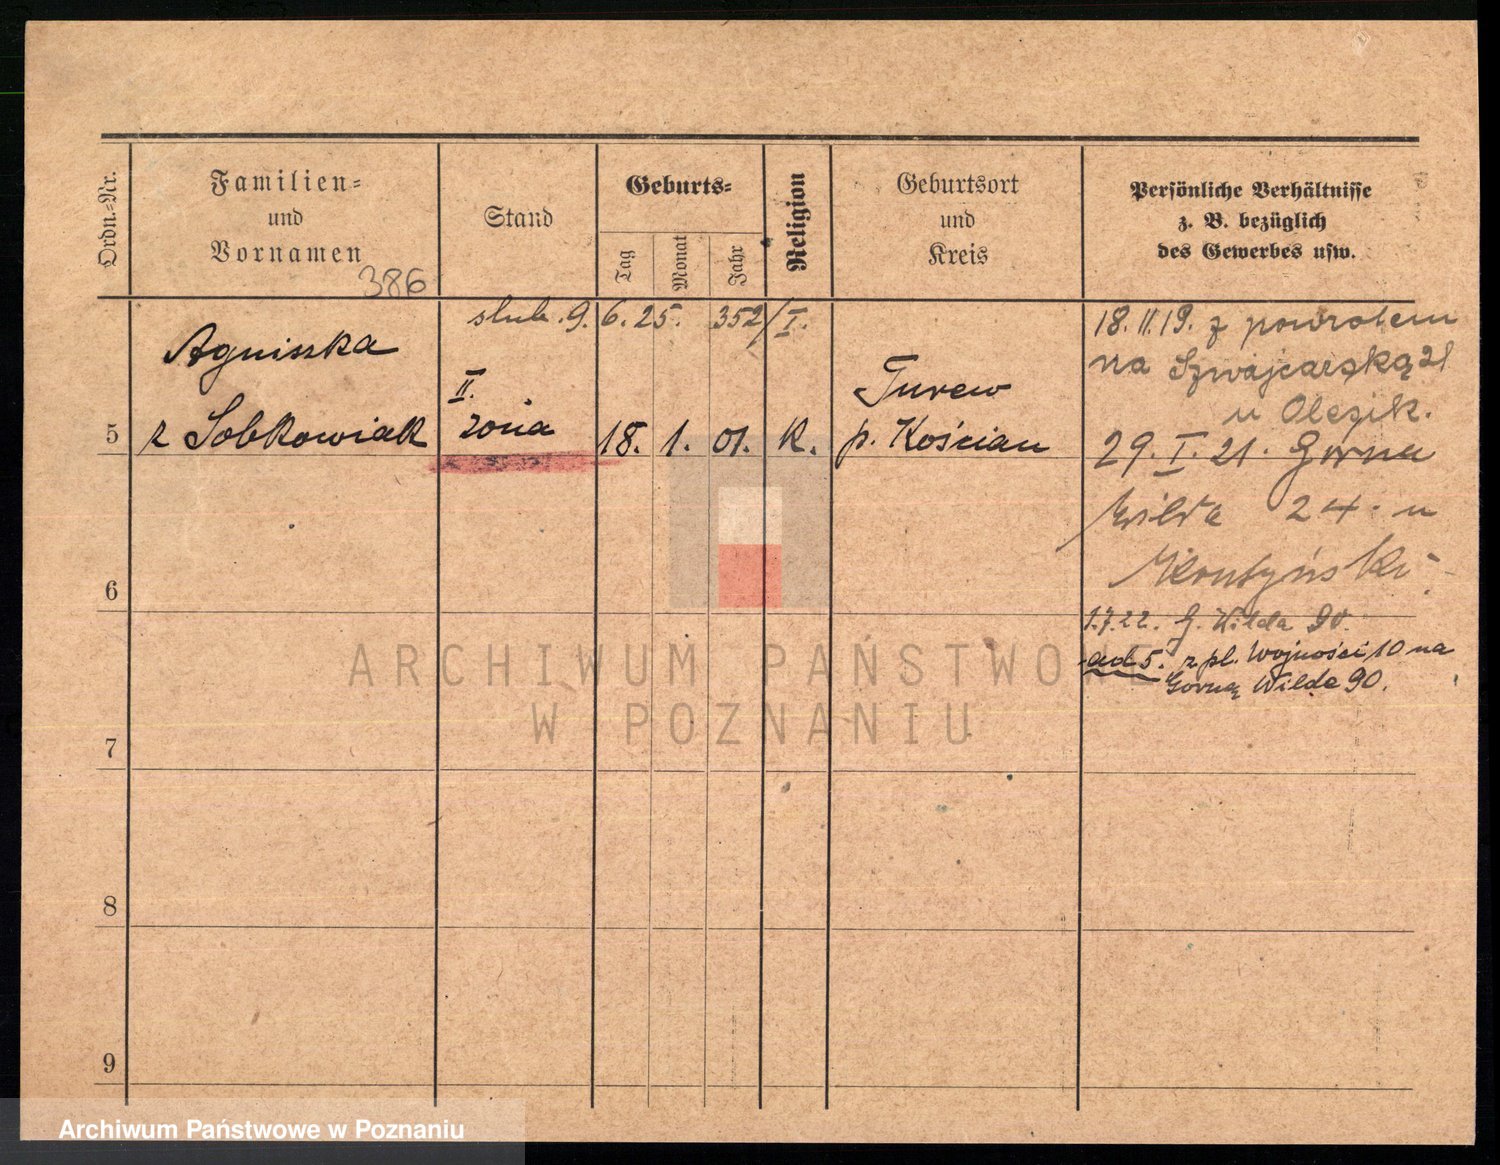 Ordn.-Nr.
Familien-
und
Vornamen
386
Stand
Geburts-
Tag
Monat
Jahr
Religion
Geburtsort
und
Kreis
Persönliche Verhältnisse
z. B. bezüglich
des Gewerbes usw.
ślub. 9. 6. 25. 352/I.
5
Agniszka
z Sobkowiak
II.
żona
18. 1. 01. K.
Turew
p. Kościan
18.11.19. z powrotem
na Szwajcarską 21
u Olejik.
29. I. 21. Górna
Wilda 24. u
1.7.22. G. Wilda 90.
ad 5. z pl. Wolności 10 na
Górną Wildę 90.
6
7
8
9
ARCHIWUM PAŃSTWOWE
W POZNANIU
Archiwum Państwowe w Poznaniu